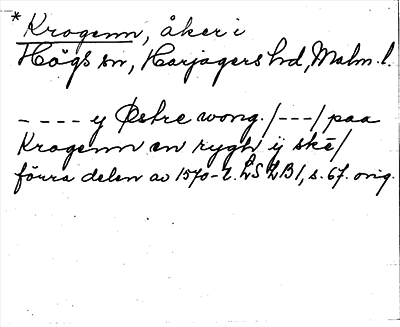 *Krogenn, åker i
Högs sn, Harjagers hd, Malm. l.
---- y Østre wong. /---/ paa
Krogenn en rygh ij skē/
förra delen av 1570-t. LSLB1, s. 67. orig.